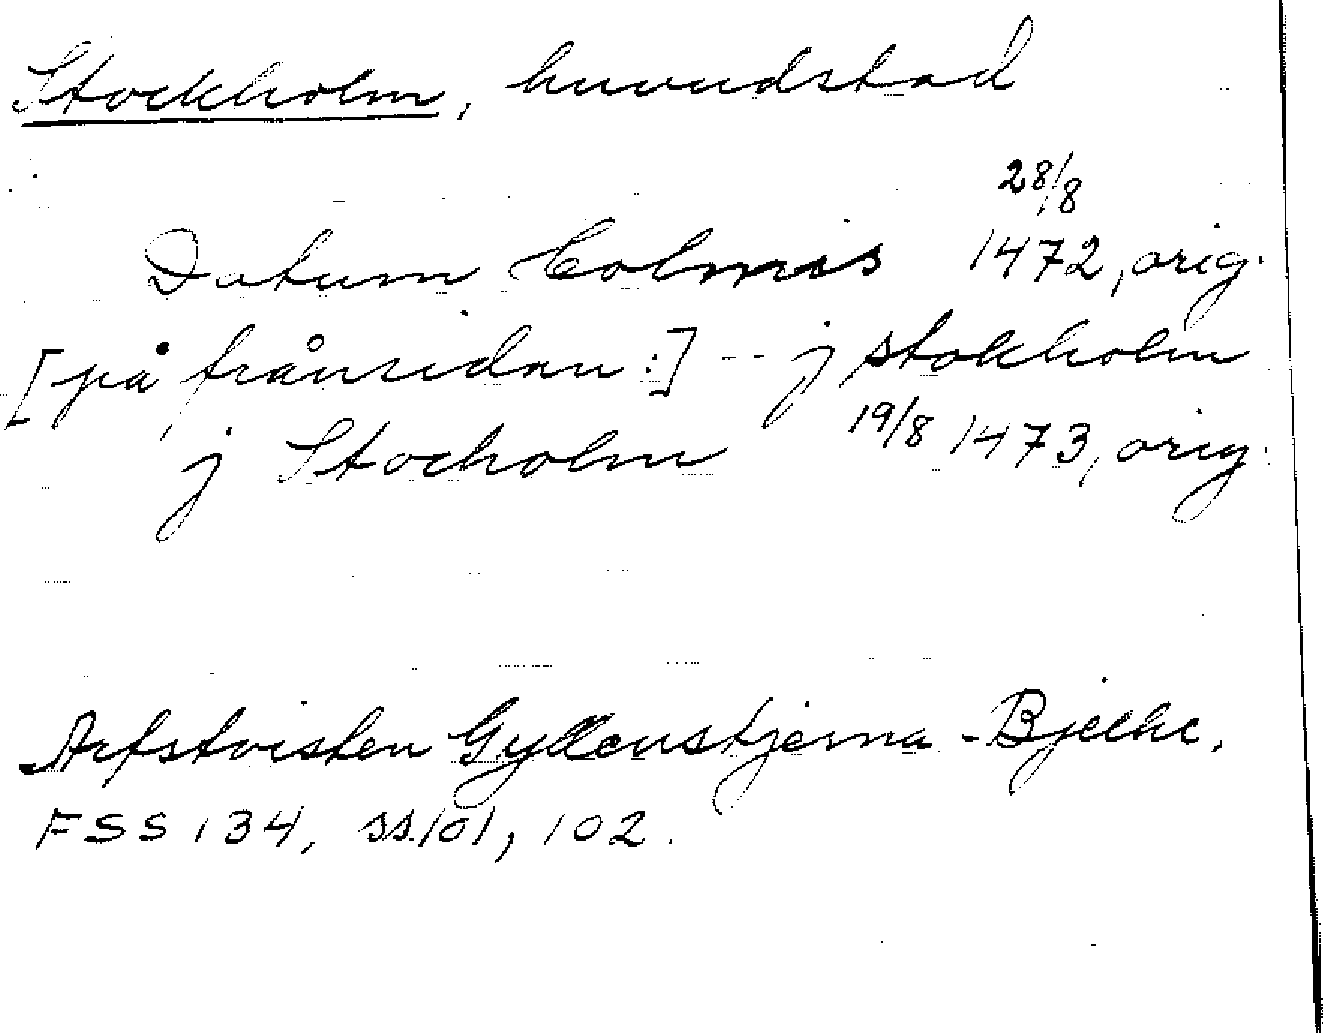 Stockholm, huvudstad
28/8
Datum Holmis 1472, orig.
[på frånsidan:] -- j stokholm
j Stocholm 19/8 1473, orig.
Arfstvisten Gyllenstjerna - Bjelke,
FSS 134, ss. 101, 102.